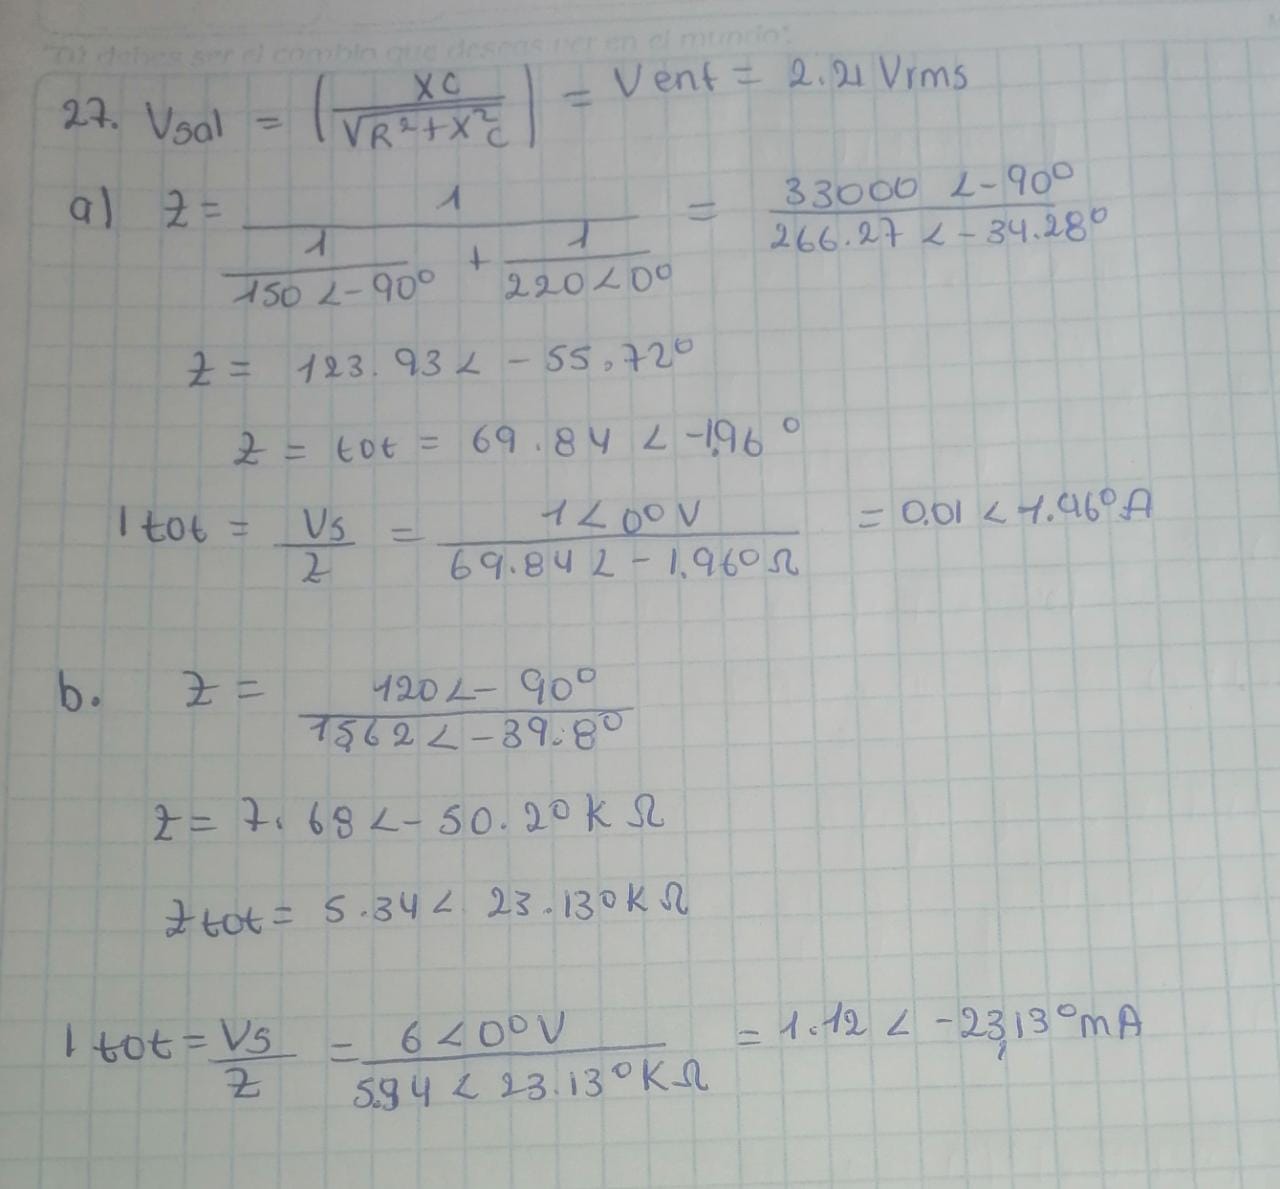 "Tú debes ser el cambio que deseas ver en el mundo".
27. Vsal = ( XC / √R²+X²C ) = Vent = 2.21 Vrms
a) Z = 1 / ( 1 / 150 <-90° + 1 / 220<0° ) = 33000 <-90° / 266.27 < -34.28°
Z = 123.93 < -55.72°
Z = tot = 69.84 < -1.96°
I tot = Vs / Z = 1<0° V / 69.84 < -1.96° Ω = 0.01 < 1.96° A
b. Z = 120 <- 90° / 15,62 < -39.8°
Z = 7.68 <- 50.2° K Ω
Z tot = 5.34 < 23.13° K Ω
I tot = Vs / Z = 6 <0° V / 5.94 < 23.13° K Ω = 1.12 < -23,13° mA